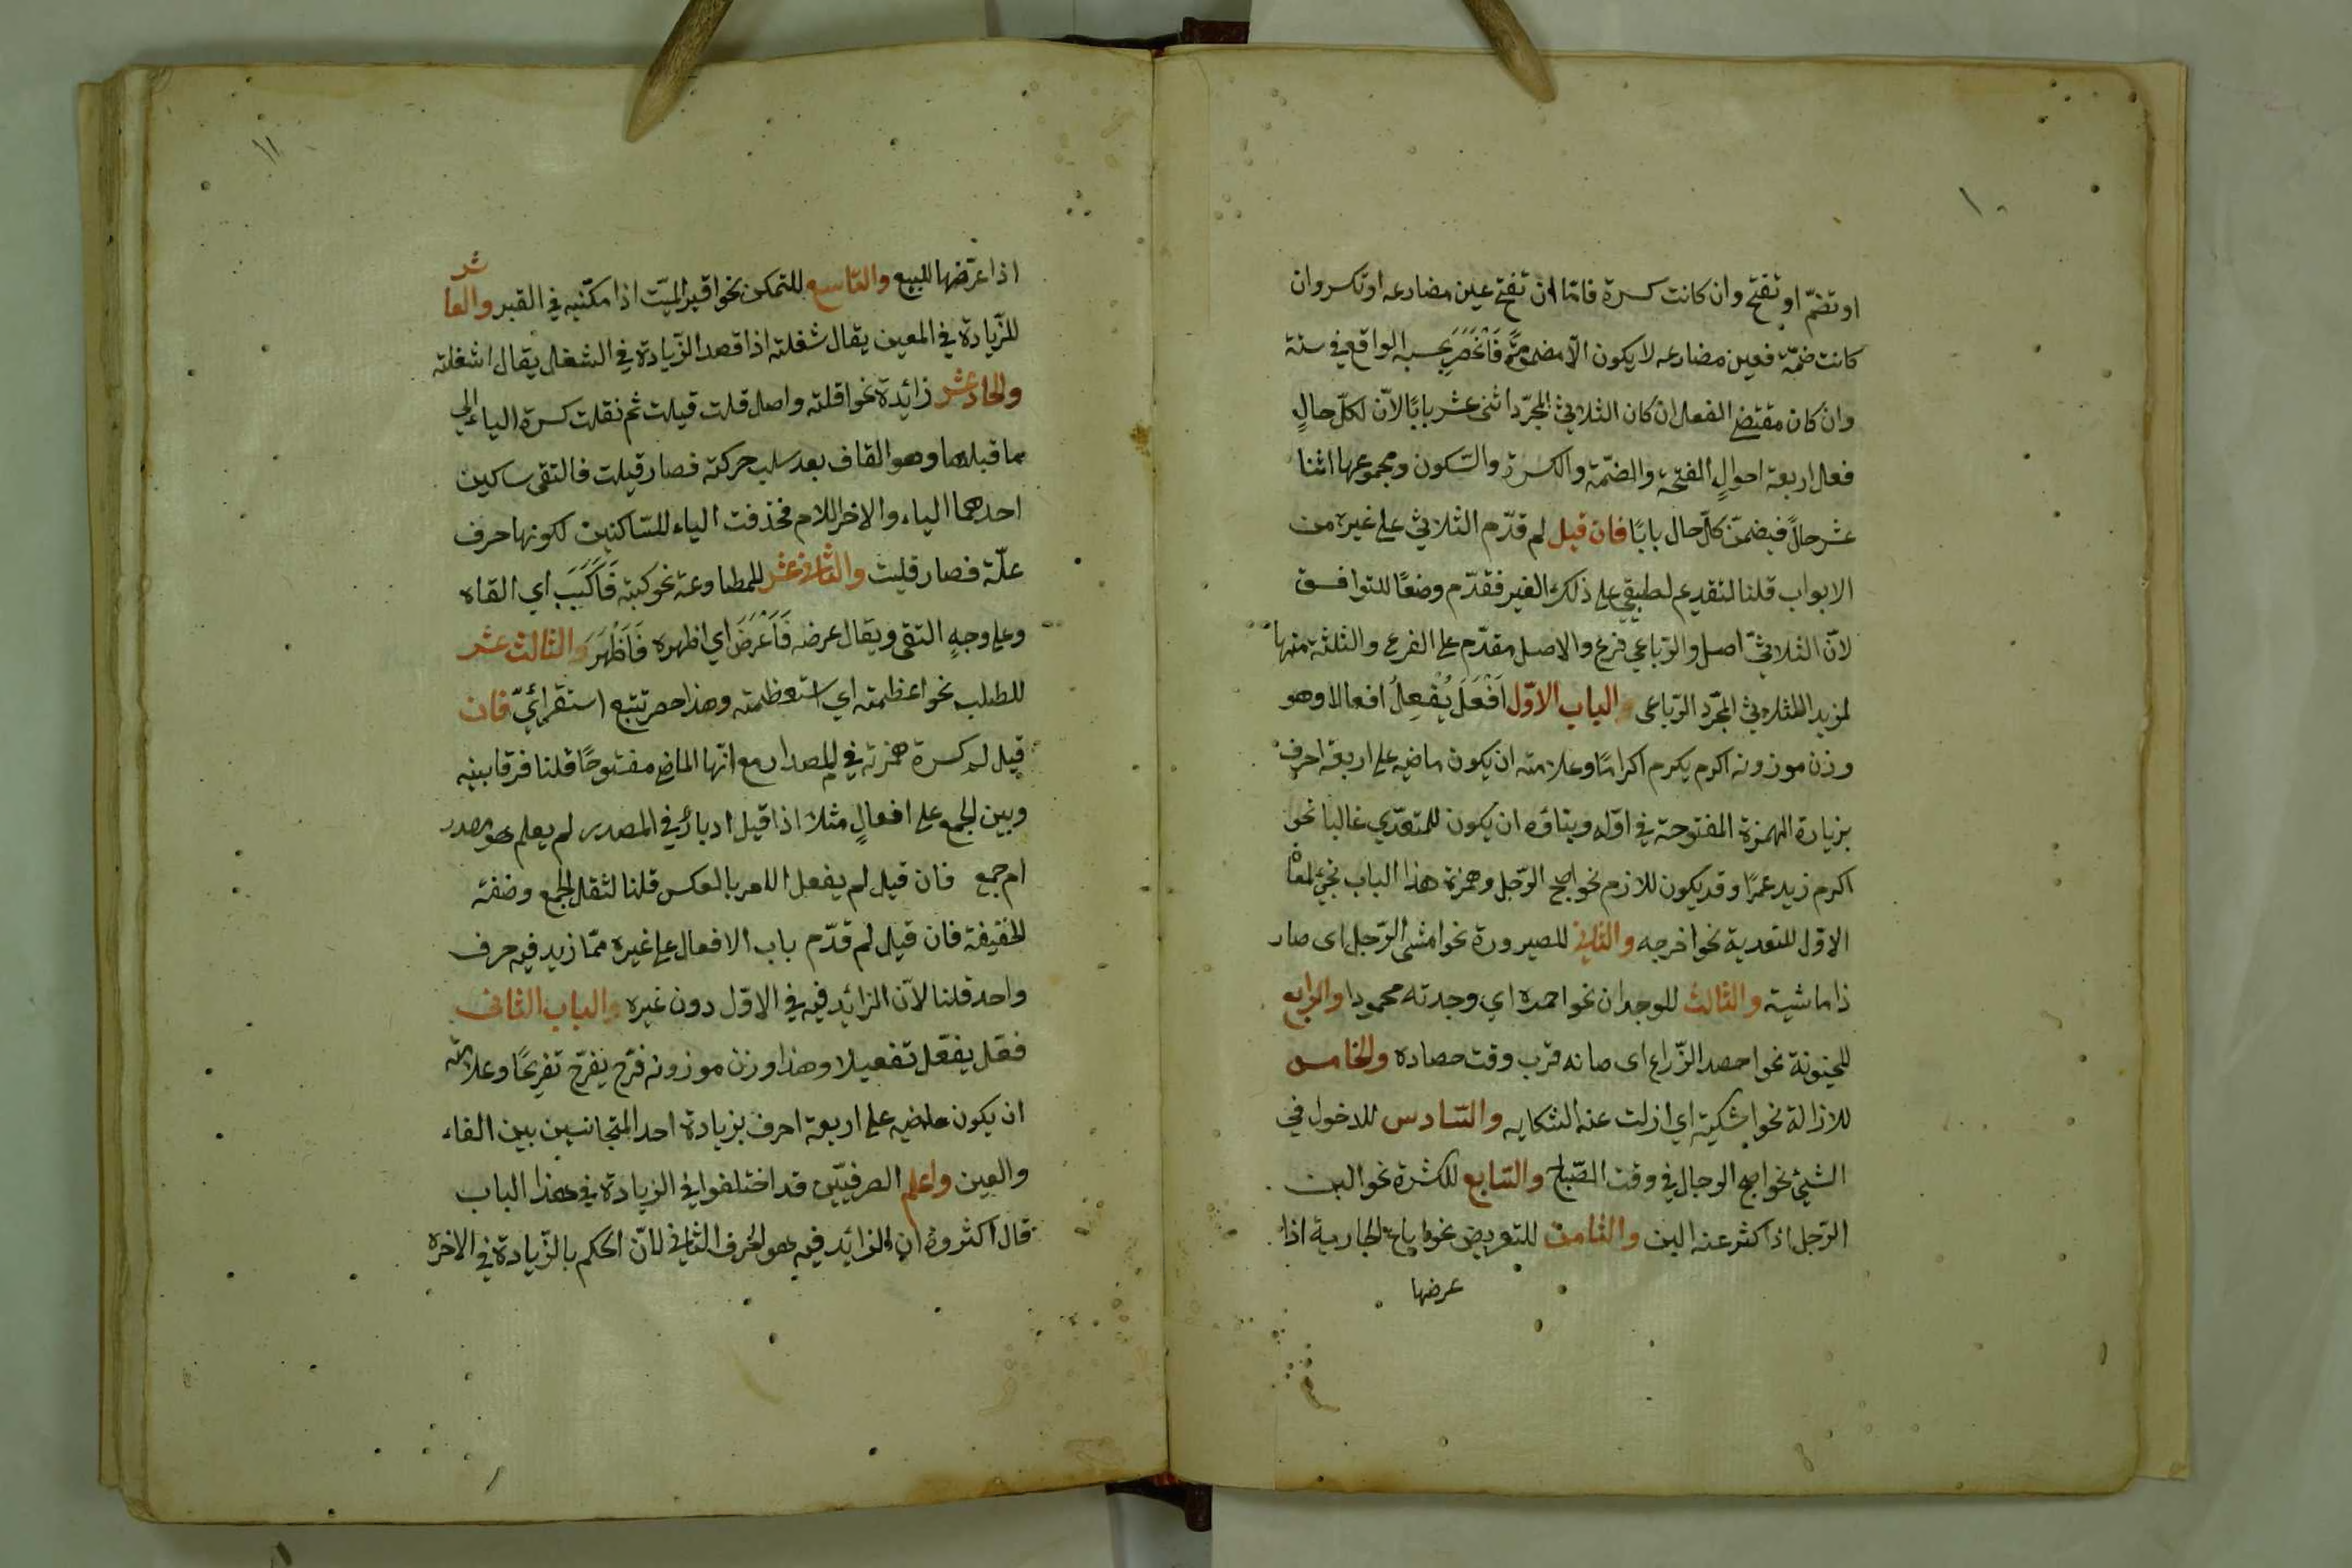 ١٠
او تضمّ او تفتح وان كانت كسرة فامّا ان تفتح عين مضارعه او تكسر وان
كانت ضمّة فعين مضارعه لا يكون الّا مضموم فَانْحَصَرَ بحسب الواقع في ستة
وان كان مقتضى الفعل ان كان الثلاثيّ المجرّد اثنى عشر بابًا لانّ لكلّ حالٍ
فعل اربعة احوالٍ الفتحة والضمّة والكسرة والسّكون ومجموعها اثنا
عشر حالًا فيضمّن كلّ حال بابًا فان قيل لم قدّم الثلاثيّ على غيره من
الابواب قلنا لتقديم لطبيقي على ذلك الغير فقدّم وضعًا للتوافق
لانّ الثلاثيّ اصل والرّباعي فرع والاصل مقدّم على الفرع والثلثة منها
لمزيد الثلاثيّ المجرّد الرّباعى والباب الاوّل اَفْعَلَ يُفْعِلُ افعالا وهو
وزن موزونه اكرم يكرم اكرامًا وعلامته ان يكون ماضيه على اربعة احرف
بزيادة الهمزة المفتوحة في اوّله وبناؤه ان يكون للمتعدّي غالبا نحو
اكرم زيد عمرًا وقد يكون للازم نحو اصبح الرّجل وهمزة هذا الباب تجئ لمعا
الاوّل للتعدية نحو اخرجه والثانى للصيرورة نحو امشى الرّجل اى صار
ذا ماشية والثالث للوجدان نحو احمده اي وجدته محمودا والرابع
للحينونة نحو احصد الزّراع اى صانه قرب وقت حصاده والخامس
للازالة نحو اشكيته اي ازلت عنه الشكايه والسّادس للدخول في
الشيئ نحو اصبح الرجال في وقت الصّباح والسّابع للكثرة نحو البن
الرّجل اذا كثر عنه البن والثامن للتعريض نحو اباع الجارية اذا
عرضها
١١
اذا عرّضها للبيع والتاسع للتمكن نحو اقبر الميّت اذا مكّنيه في القبر والعاشر
للزّيادة في المعين يقال شغلته اذا قصد الزّيادة في الشغل يقال اشغلته
والحاد عشر زائدة نحو اقلته واصل قلت قيلت ثم نقلت كسرة الياء الى
ما قبلها وهو القاف بعد سلب حركته فصار قيلت فالتقى ساكين
احدهما الياء والاخر اللام فحذفت الياء للسّاكنين لكونها حرف
علّة فصار قليت والثانى عشر للمطاوعة نحو كببته فَاَكَبَبَ اي القاه
وعلى وجهٍ التقى ويقال عرضه فَاَعْرَضَ اي اظهره فَاَظْهَرَ والثالث عشر
للطلب نحو اعظمته اي استعظمته وهذا حصر تتبع استقرائيّ فان
قيل لم كسرة همزته في المصدار مع انّها الماضى مفتوحًا قلنا فرقا بينه
وبين الجمع على افعالٍ مثلا اذا قيل ادبارٌ في المصدر لم يعلم هو مصدر
ام جمع فان قيل لم يفعل الامر بالعكس قلنا لثقل الجمع وضفته
الخفيفة فان قيل لم قدّم باب الافعال على غيره ممّا زيد فيه حرف
واحد قلنا لانّ الزائد فيه في الاوّل دون غيره والباب الثانى
فعّل يفعّل تفعيلا وهذا وزن موزونه فرّح يفرّح تفريحًا وعلامته
ان يكون ماضيه على اربعة احرف بزيادة احد المتجانسين بين الفاء
والعين واعلم الصرفيّين قد اختلفوا في الزيادة في هذا الباب
قال اكثرون ان الزائد فيه هو الحرف الثانى لانّ الحكم بالزّيادة في الاخره